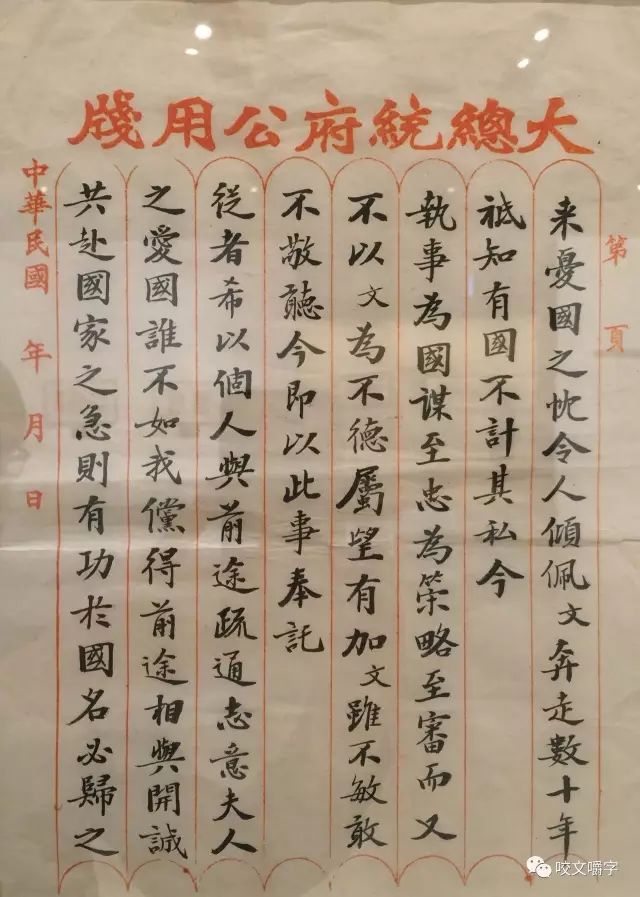 大總統府公用牋
第 頁
来憂國之忱令人傾佩文奔走數十年
祗知有國不計其私今
執事為國謀至忠為策略至審而又
不以文為不德屬望有加文雖不敏敢
不敬聽今即以此事奉託
從者希以個人與前途疏通志意夫人
之愛國誰不如我儻得前途相與開誠
共赴國家之急則有功於國名必歸之
中華民國 年 月 日
咬文嚼字